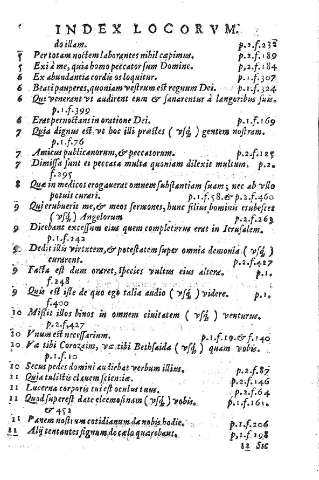 INDEX LOCORVM.
do illam. p.2.f.232
5 Per totam noctem laborantes nihil capimus. p.2.f.189
5 Exi à me, quia homo peccator sum Domine. p.2.f.184
6 Ex abundantia cordis os loquitur. p.1.f.307
6 Beati pauperes, quoniam vestrum est regnum Dei. p.1.f.324
6 Qui venerant vt audirent eum & sanarentur à languoribus suis.
p.1.f.399
6 Erat pernoctans in oratione Dei. p.1.f.169
7 Quia dignus est vt hoc illi præstes (vsq;) gentem nostram.
p.1.f.76
7 Amicus publicanorum, & peccatorum. p.2.f.125
7 Dimissa sunt ei peccata multa quoniam dilexit multum. p.2.
f.295
8 Quæ in medicos erogauerat omnem substantiam suam; nec ab vllo
potuit curari. p.1.f.58.& p.2.f.460
9 Qui erubuerit me, & meos sermones, hunc filius hominis erubescet
(vsq;) Angelorum p.2.f.263
9 Dicebant excessum eius quem completurus erat in Ierusalem.
p.1.f.142
9 Dedit illis virtutem, & potestatem super omnia demonia (vsq;)
curarent. p.2.f.427
9 Facta est dum oraret, species vultus eius altera. p.1.
f.248
9 Quis est iste de quo ego talia audio (vsq;) videre. p.1.
f.400
10 Misit illos binos in omnem ciuitatem (vsq;) venturus.
p.2.f.427
10 Vnum est necessarium. p.1.f.19.& f.140
10 Væ tibi Corozaim, væ tibi Bethsaida (vsq;) quam vobis.
p.1.f.10
10 Secus pedes domini audiebat verbum illius. p.2.f.87
11 Quia tulistis clauem scientiæ. p.2.f.146
11 Lucerna corporis tui est oculus tuus. p.2.f.64
11 Quod superest date eleemosinam (vsq;) vobis. p.1.f.161.
& 452
11 Panem nostrum cotidianum da nobis hodie. p.1.f.206
11 Alij tentantes signum de cælo quærebant. p.2.f.198
Sic